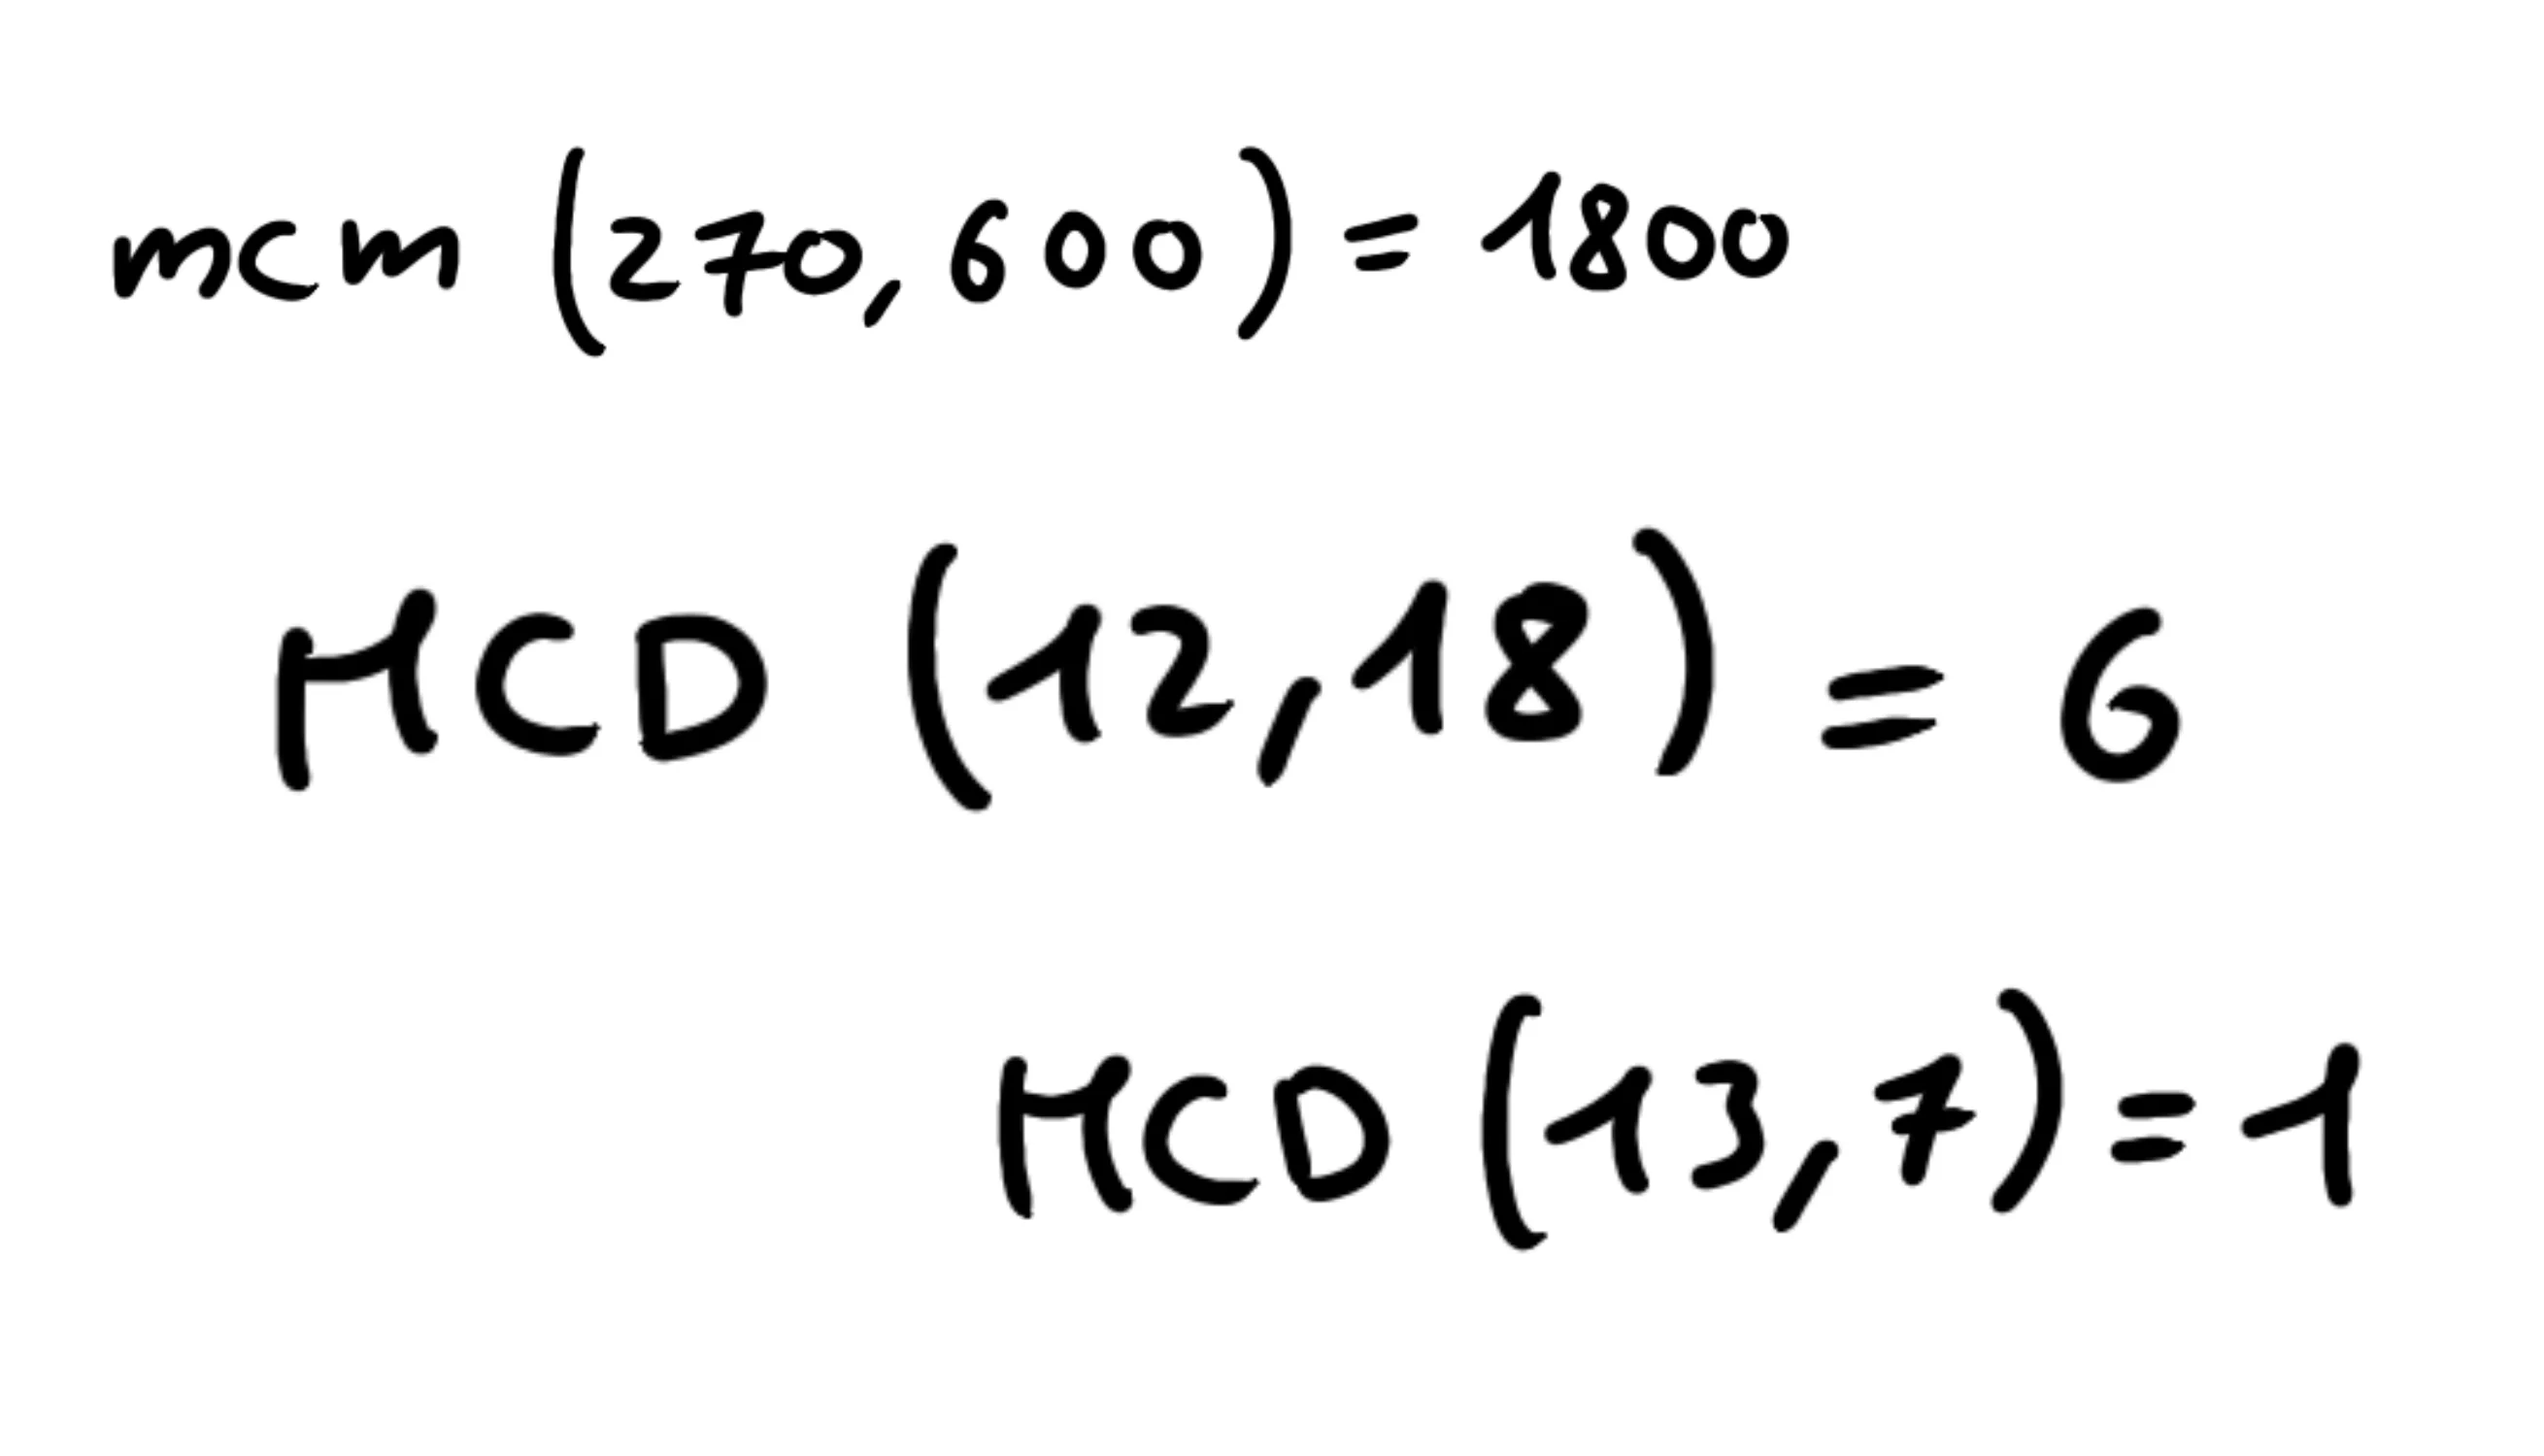 mcm (270, 600) = 1800
MCD (12, 18) = 6
MCD (13, 7) = 1